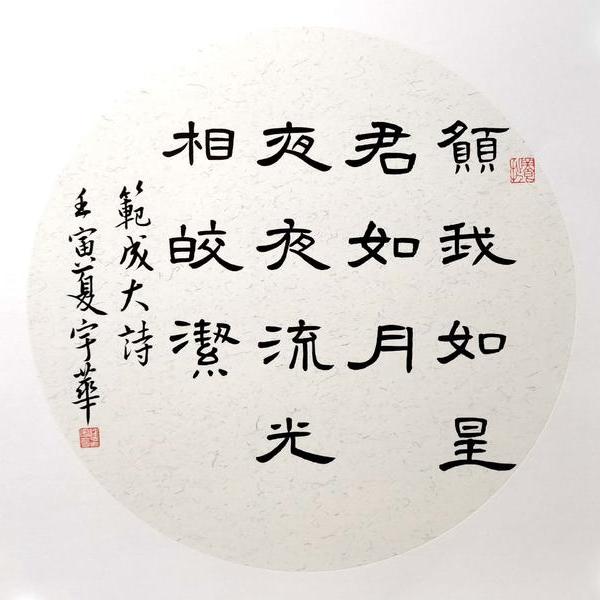 願我如星
君如月
夜夜流光
相皎潔
範成大詩
壬寅夏宇華